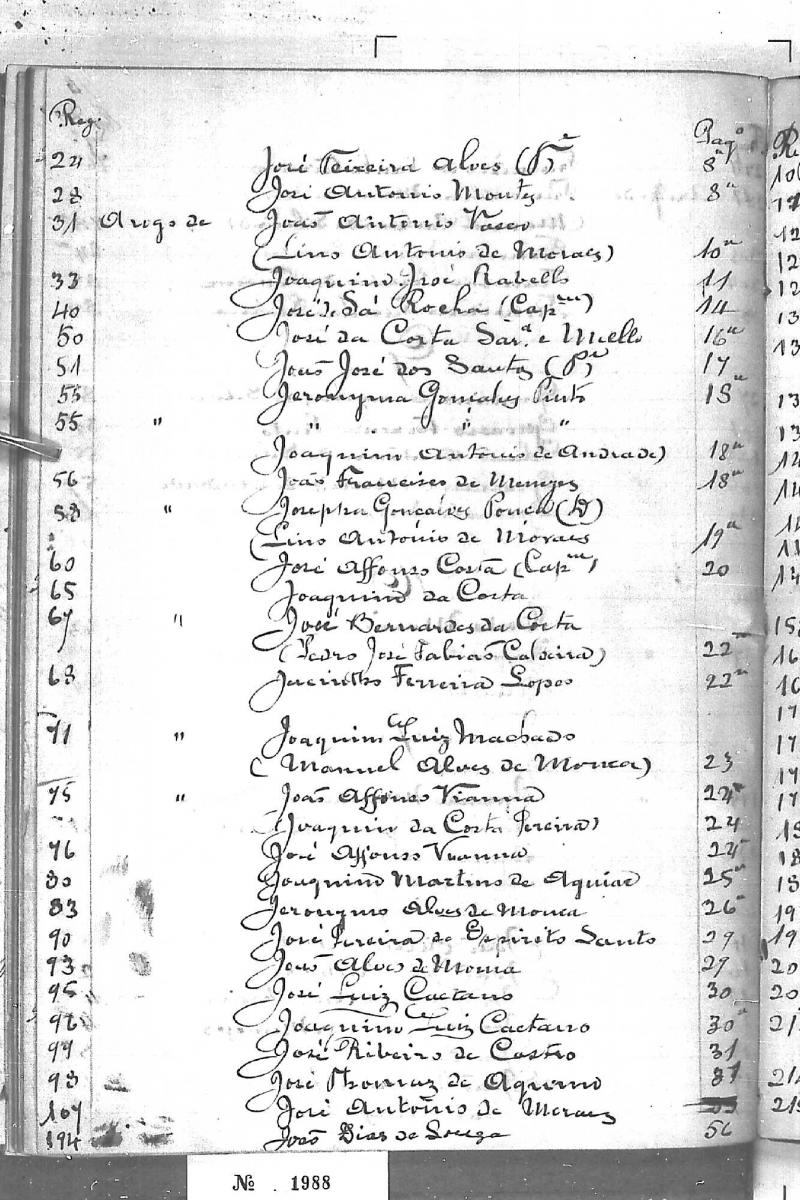 Reg. Pag.
24 José Teixeira Alves (Pe 8v
28 José Antonio Montes 8v
31 A rogo de João Antonio Vasco
(Lino Antonio de Moraes) 10v
33 Joaquim José Rabello 11
40 José de Sá Rocha (Capm) 14
50 José da Costa Sar.a e Mello 16v
51 João José dos Santos (Pe 17
55 Jeronyma Gonçalves Pinto 18v
55 " " " "
Joaquim Antonio de Andrade) 18v
56 João Francisco de Menezes 18v
58 " Josepha Gonçalves (D)
(Lino Antonio de Moraes 19v
60 José Affonso Costa (Capm) 20
65 Joaquim da Costa
67 " José Bernardes da Costa
(Pedro José Fabião Caldeira) 22
68 Jacintho Ferreira Lopes 22v
71 " Joaquim Luiz Machado
(Manuel Alves de Moura) 23
75 " João Affonso Vianna 24
(Joaquim da Costa Pereira) 24
76 José Affonso Vianna 24
80 Joaquim Martins de Aguiar 25v
83 Jeronymo Alves de Moura 26
90 José Pereira do Espirito Santo 29
93 João Alves de Moura 29
95 José Luiz Caetano 30
Joaquim Luiz Caetano 30v
José Ribeiro de Castro 31
98 José Thomaz de Aquino 31
107 José Antonio de Moraes
194 João Dias de Souza 56
№ . 1988